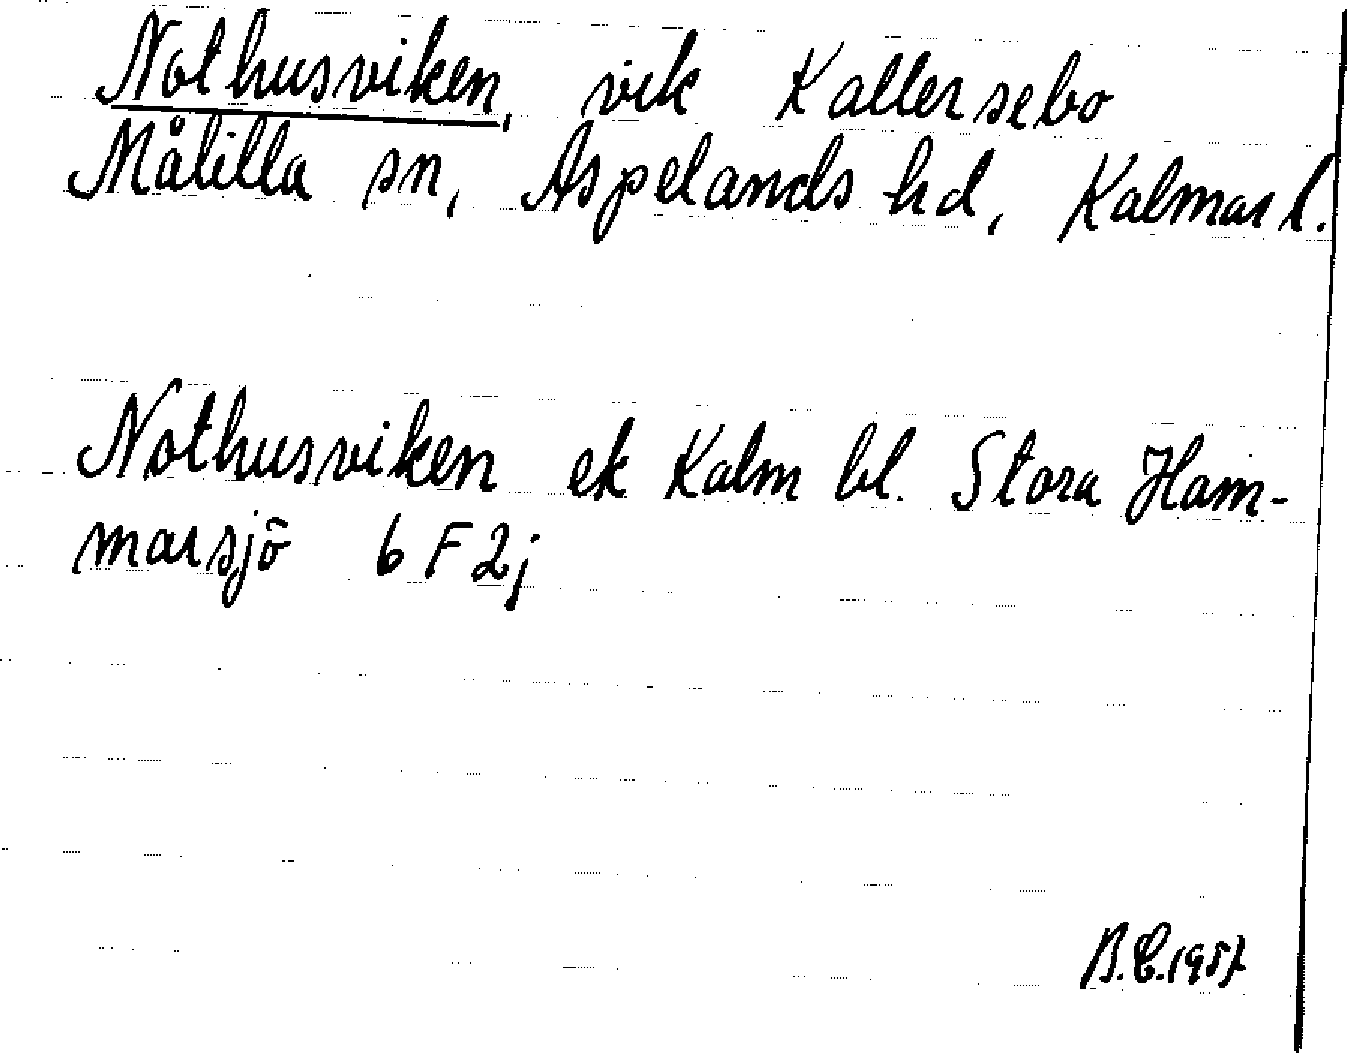 Nothusviken, vik Kallersebo
Målilla sn, Aspelands hd, Kalmar l.
Nothusviken ek Kalm bl. Stora Ham-
marsjö 6F2j
B.E.1957